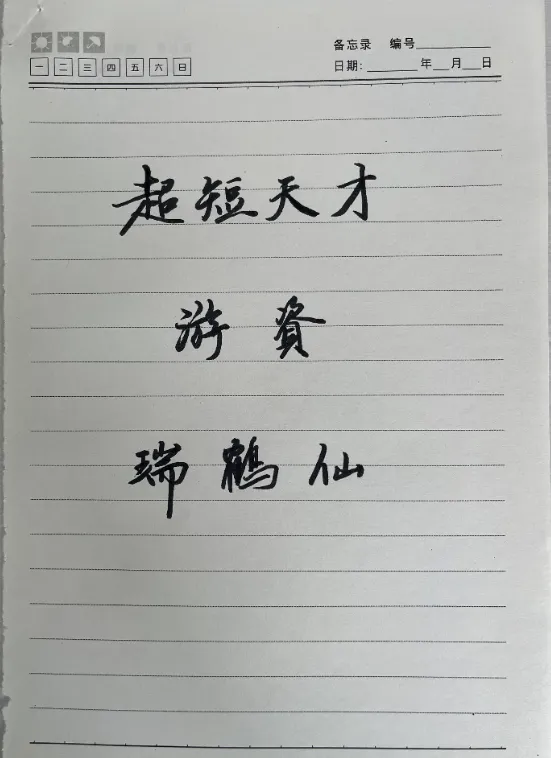 备忘录 编号
一 二 三 四 五 六 日
日期: 年 月 日
超短天才
游資
瑞鶴仙